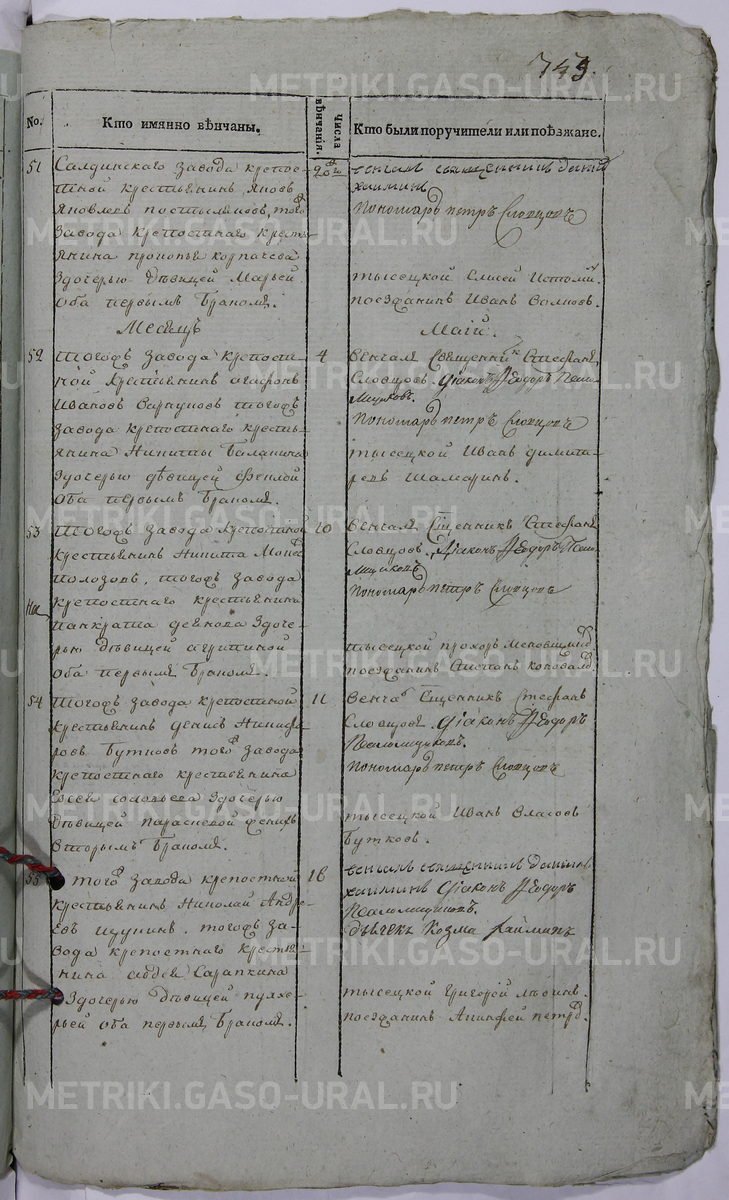 743.
No.
Кто имянно вѣнчаны.
Числа вѣнчанія.
Кто были поручители или поѣзжане.
51
Салдинскаго завода крепос-
тной крестьянинъ Яковъ
Яковлевъ того
завода крепостнаго кресть
янина прокопья корпачева
здочерью дѣвицей Марьей
оба первымъ бракомъ.
20
венчалъ священникъ
Пономарь петръ Словцовъ
тысецкой Елисей
поезжанинъ Иванъ Волковъ.
Месяцъ
Маій.
52
Тогожъ завода крепост-
ной крестьянинъ агафонъ
Ивановъ тогожъ
завода крепостнаго кресть-
янина Никиты Баланина
здочерью дѣвицей Феклой
оба первымъ бракомъ.
4
венчалъ Священникъ Стефанъ
Словцовъ. Діаконъ Ѳеодоръ Псало-
мщиковъ.
Пономарь петръ Словцовъ
тысецкой Иванъ димит-
ревъ Шамаринъ.
53
Тогожъ завода крепостной
крестьянинъ Никита
Полозовъ, тогожъ завода
крепостнаго крестьянина
панкратья здоче-
рью дѣвицей агрипиной
оба первымъ бракомъ.
10
венчалъ Сщенникъ Стефанъ
Словцовъ, Діаконъ Ѳеодоръ Псало
мщиковъ
Пономарь петръ Словцовъ
тысецкой прохоръ
поезжанинъ Степанъ коновалов
54
Тогожъ завода крепостной
крестьянинъ денисъ Никифо
ровъ Бутковъ того завода
крепостнаго крестьянина
соловьева здочерью
дѣвицей параскевой
вторымъ бракомъ.
11
Венча Сщенникъ Стефанъ
Словцовъ. Діаконъ Ѳеодоръ
Псаломщиковъ.
Пономарь петръ Словцовъ
тысецкой Иванъ Власовъ
Бутковъ.
55
того завода крепостной
крестьянинъ Николай Андре
евъ тогожъ за-
вода крепостнаго кресть
янина авдея Сарапкина
здочерью дѣвицей пулхе-
рьей оба первымъ бракомъ.
16
венчалъ священникъ
Діаконъ Ѳеодоръ
Псаломщиковъ.
дьячекъ Козма
тысецкой Григорей
поезжанинъ петров
METRIKI.GASO-URAL.RU